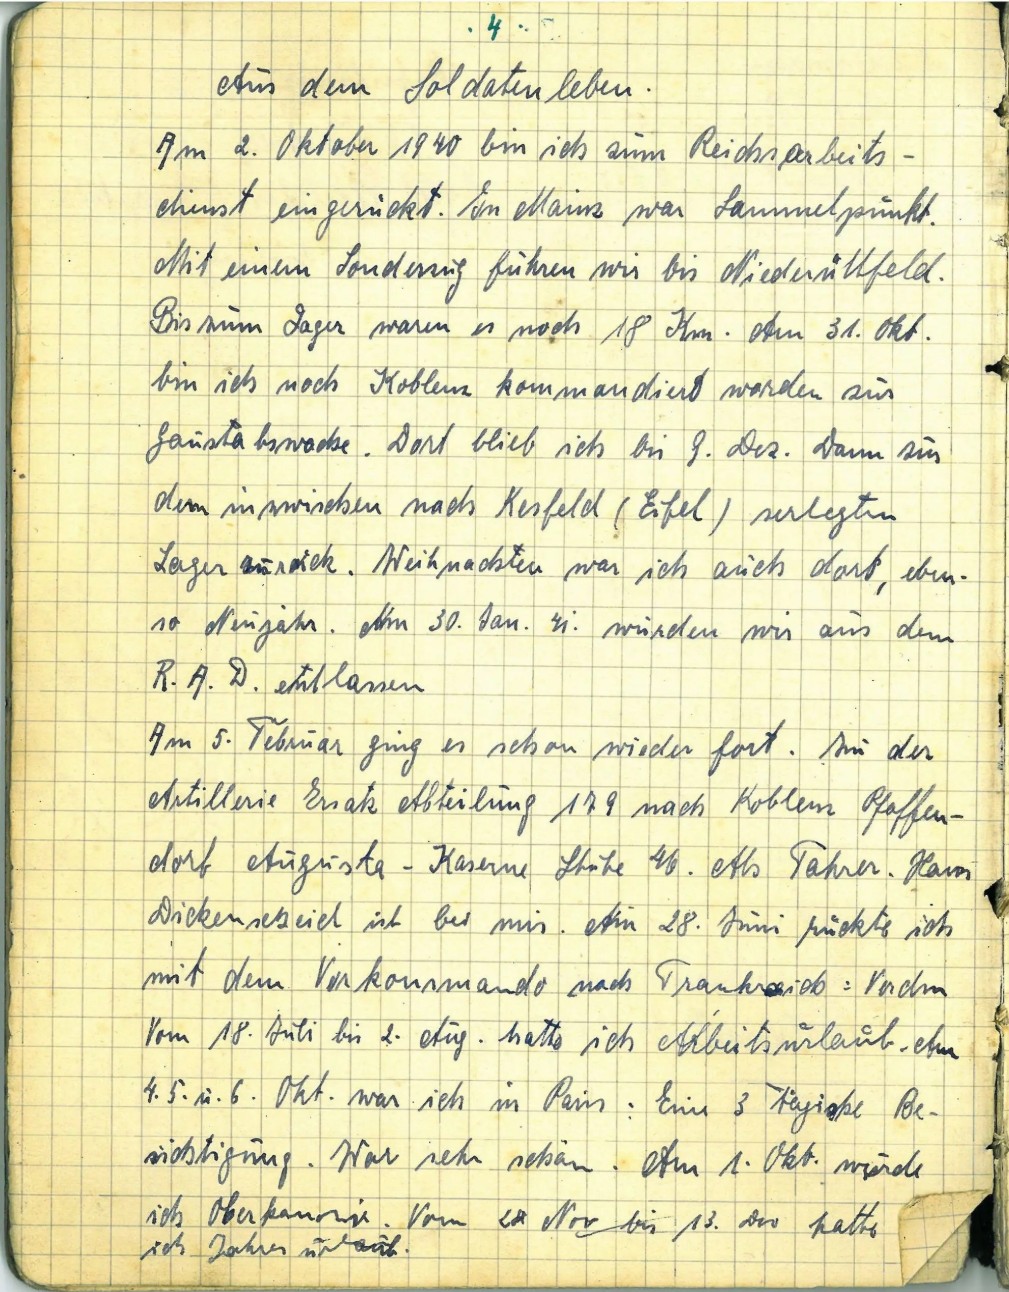 . 4 .
Aus dem Soldatenleben.
Am 2. Oktober 1940 bin ich zum Reichsarbeits-
dienst eingerückt. In Mainz war Sammelpunkt.
Mit einem Sonderzug fuhren wir bis Niederüttfeld.
Bis zum Lager waren es noch 18 Km. Am 31. Okt.
bin ich nach Koblenz kommandiert worden zur
Gaustabswache. Dort blieb ich bis 9. Dez. Dann zu
dem inzwischen nach Kesfeld (Eifel) verlegten
Lager zurück. Weihnachten war ich auch dort, eben-
so Neujahr. Am 30. Jan. 41. wurden wir aus dem
R. A. D. entlassen
Am 5. Februar ging es schon wieder fort. Zu der
Artillerie Ersatz Abteilung 179 nach Koblenz Pfaffen-
dorf Augusta - Kaserne Stube 46. Als Fahrer. Hans
ist bei mir. Am 28. Juni rückte ich
mit dem Vorkommando nach Frankreich : Verdun
Vom 18. Juli bis 2. Aug. hatte ich Arbeitsurlaub. Am
4. 5. u. 6. Okt. war ich in Paris : Eine 3 tägige Be-
sichtigung. War sehr schön. Am 1. Okt. wurde
ich Oberkanonier. Vom Nov bis 13. Dez hatte
ich Jahresurlaub.